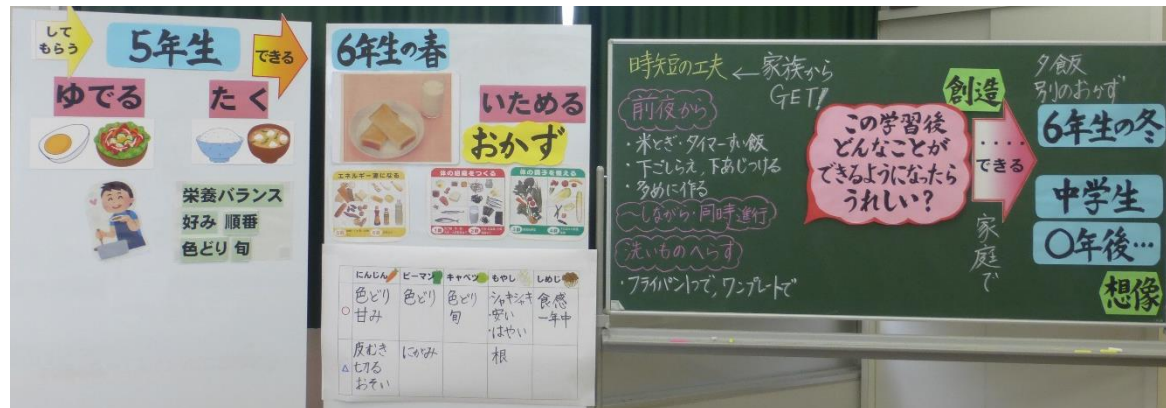 して
もらう
5年生
できる
ゆでる
たく
栄養バランス
好み 順番
色どり 旬
6年生の春
いためる
おかず
エネルギー源になる
体の組織をつくる
体の調子を整える
にんじん ピーマン キャベツ もやし しめじ
○
色どり
甘み
色どり
色どり
旬
シャキシャキ
・安い
・はやい
食感
一年中
△
皮むき
切る
おそい
にがみ
根
時短の工夫 ← 家族から
GET!
前夜から
・米とぎ・タイマーすい飯
・下ごしらえ、下あじつける
・多めに作る
〜しながら・同時進行
洗いものへらす
・フライパン1つで,ワンプレートで
この学習後
どんなことが
できるようになったら
うれしい?
創造
・・・・
できる
家庭で
夕飯
別のおかず
6年生の冬
中学生
〇年後…
想像